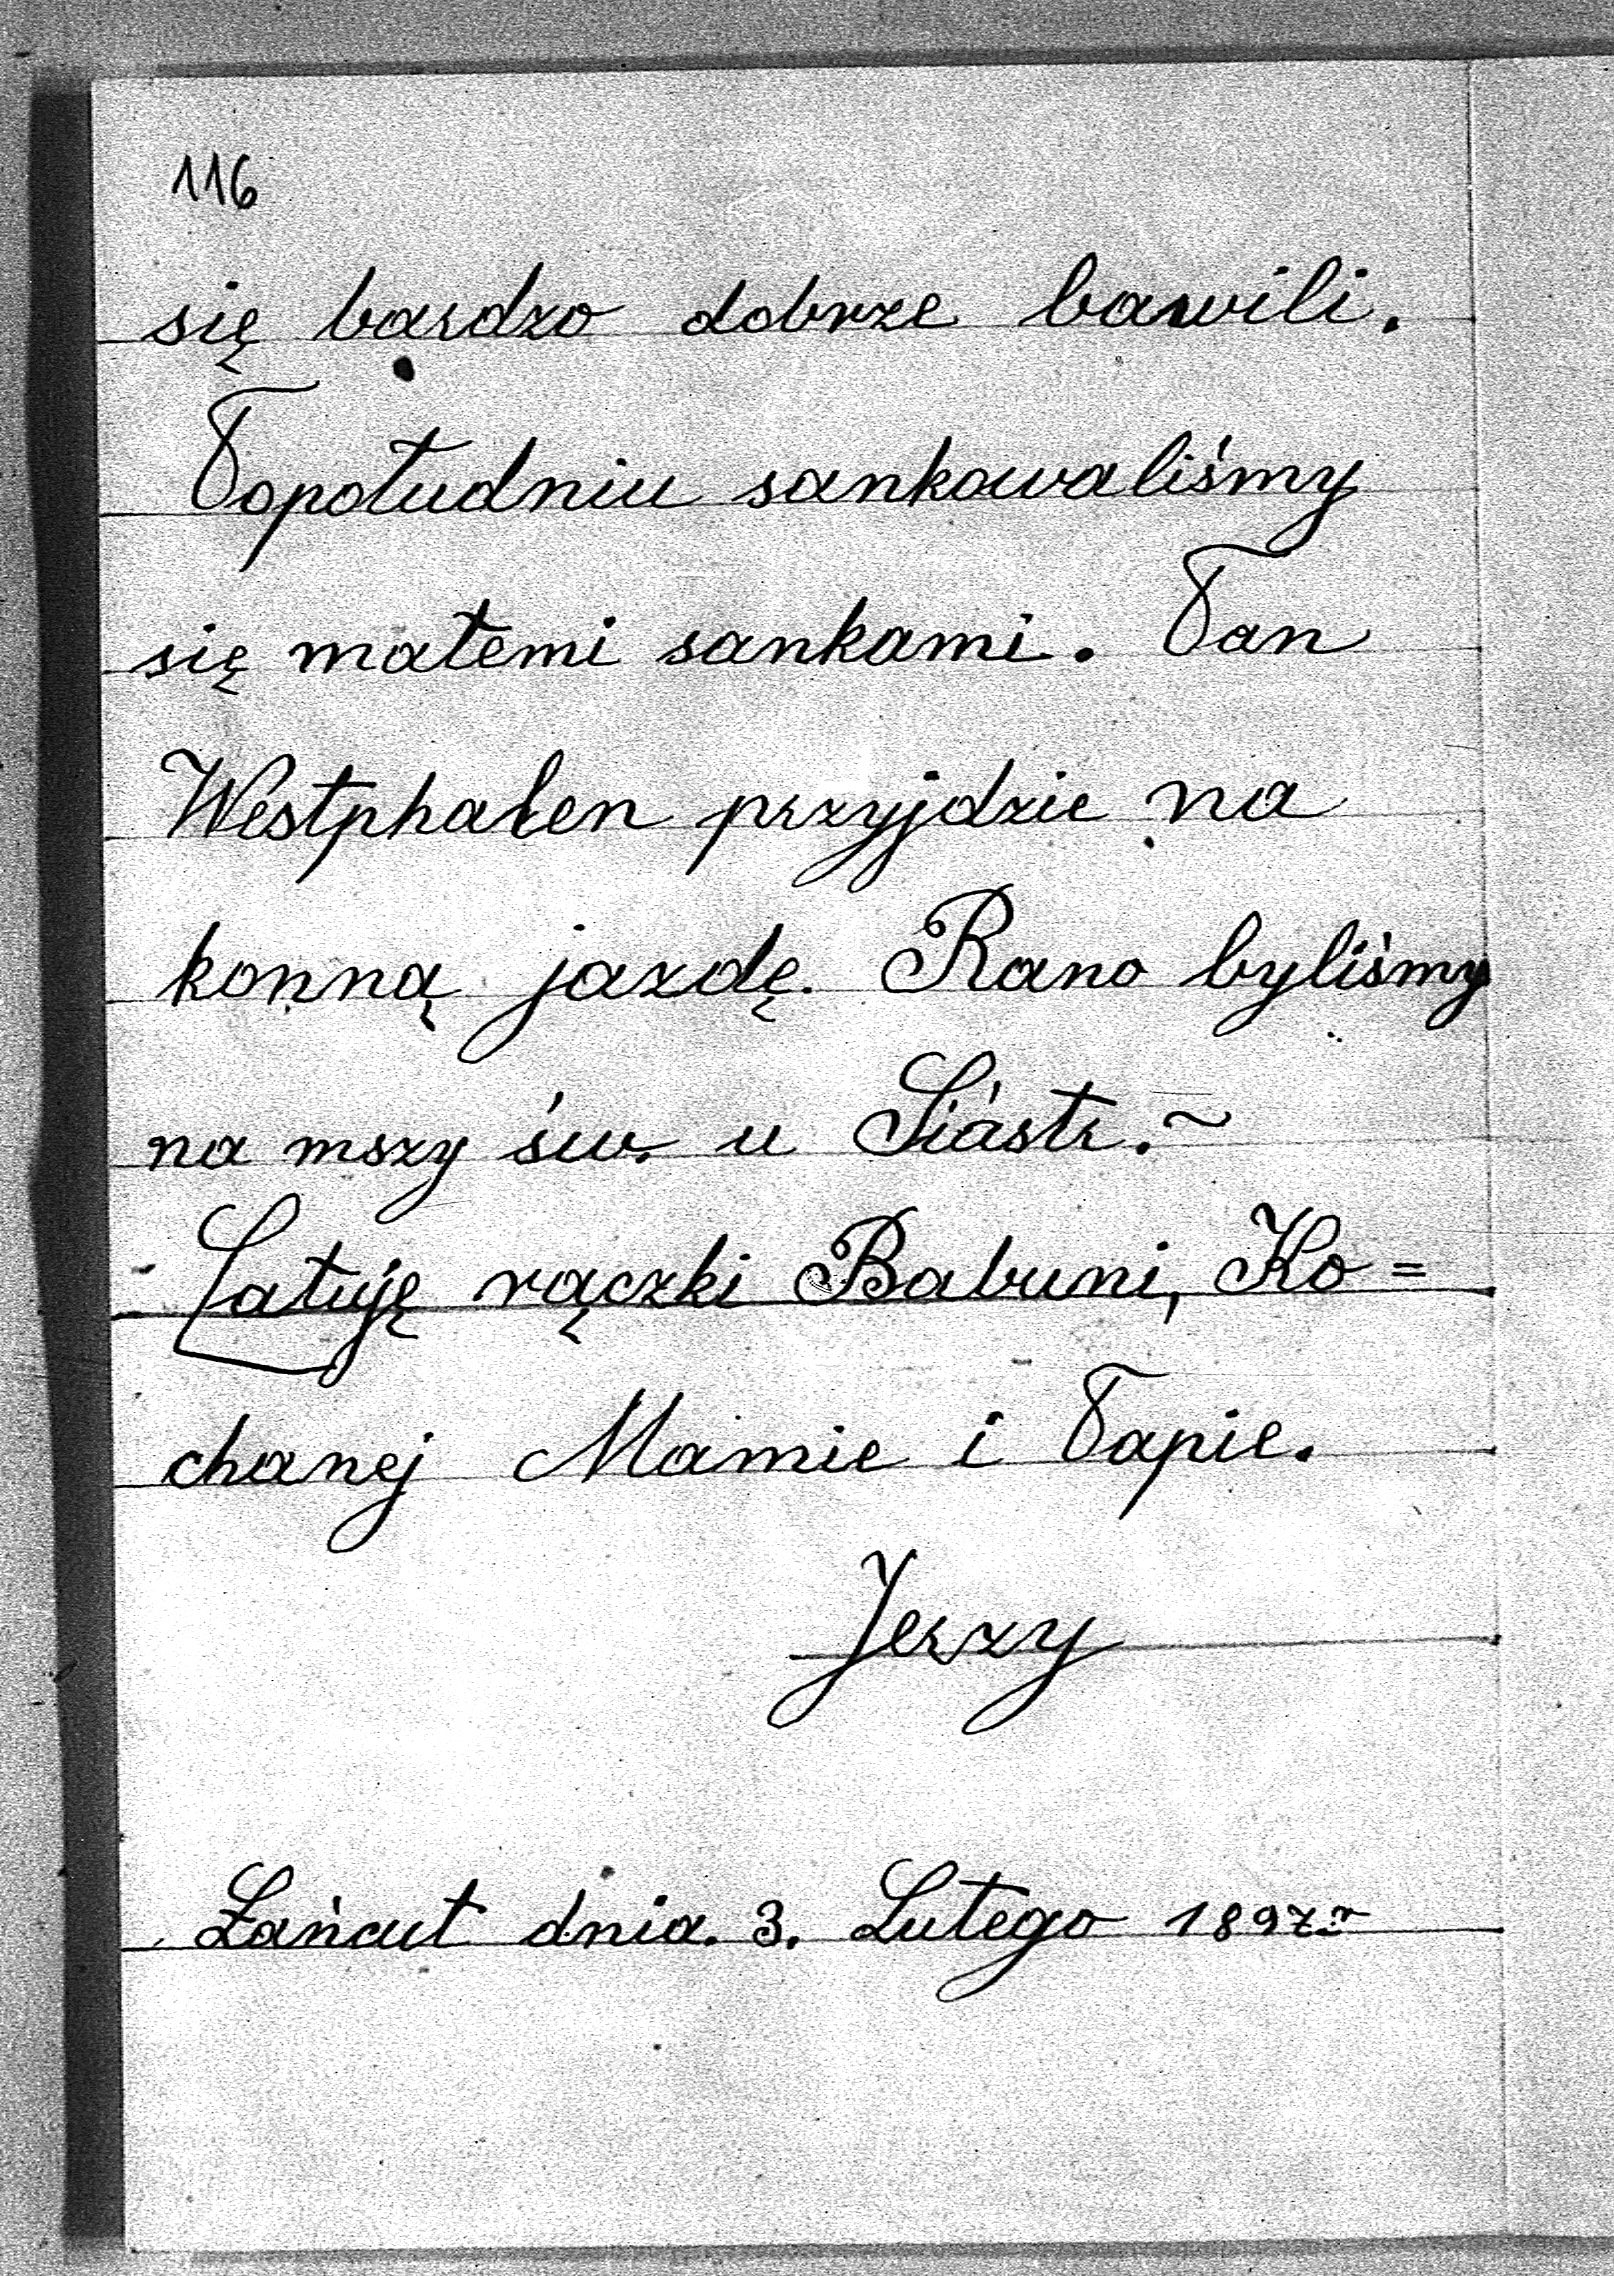 116
się bardzo dobrze bawili.
Popołudniu sankowaliśmy
się małemi sankami. Pan
Westphalen przyjdzie na
konną jazdę. Rano byliśmy
na mszy św. u Siástr.~
Całuję rączki Babuni, Ko=
chanej Mamie i Papie.
Jerzy
Łańcut dnia. 3. Lutego 1897 r